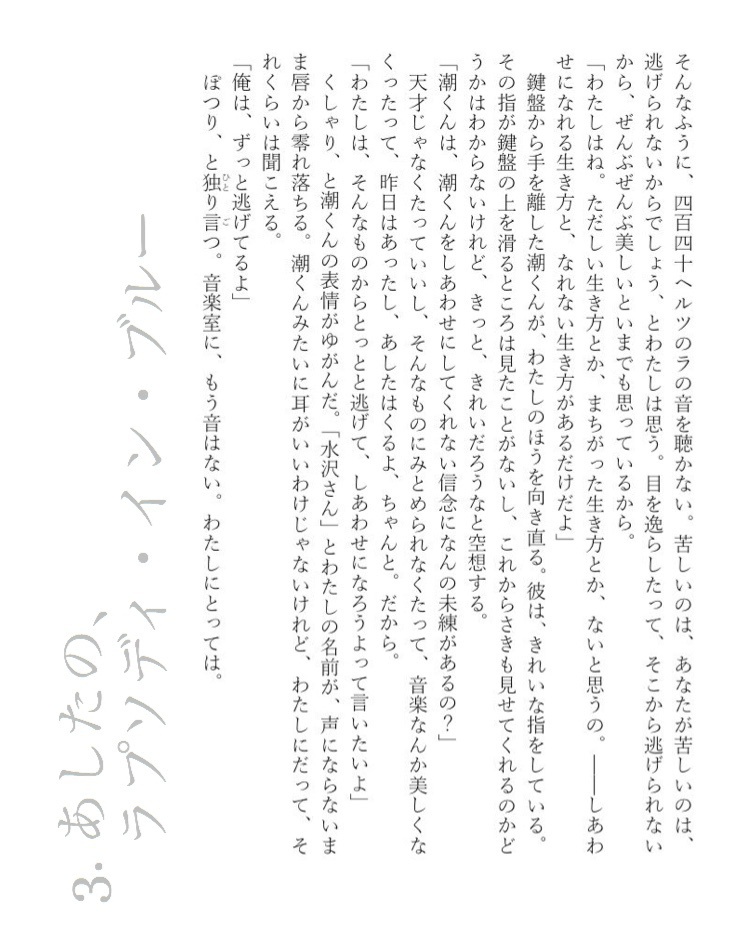 そんなふうに、四百四十ヘルツのラの音を聴かない。苦しいのは、あなたが苦しいのは、
逃げられないからでしょう、とわたしは思う。目を逸らしたって、そこから逃げられない
から、ぜんぶぜんぶ美しいといまでも思っているから。
「わたしはね。ただしい生き方とか、まちがった生き方とか、ないと思うの。――しあわ
せになれる生き方と、なれない生き方があるだけだよ」
鍵盤から手を離した潮くんが、わたしのほうを向き直る。彼は、きれいな指をしている。
その指が鍵盤の上を滑るところは見たことがないし、これからさきも見せてくれるのかど
うかはわからないけれど、きっと、きれいだろうなと空想する。
「潮くんは、潮くんをしあわせにしてくれない信念になんの未練があるの?」
天才じゃなくたっていいし、そんなものにみとめられなくたって、音楽なんか美しくな
くったって、昨日はあったし、あしたはくるよ、ちゃんと。だから。
「わたしは、そんなものからとっとと逃げて、しあわせになろうよって言いたいよ」
くしゃり、と潮くんの表情がゆがんだ。「水沢さん」とわたしの名前が、声にならないま
ま唇から零れ落ちる。潮くんみたいに耳がいいわけじゃないけれど、わたしにだって、そ
れくらいは聞こえる。
「俺は、ずっと逃げてるよ」
ぽつり、と独り言つ。音楽室に、もう音はない。わたしにとっては。
ひと ご
3. あしたの、
ラプソディ・イン・ブルー